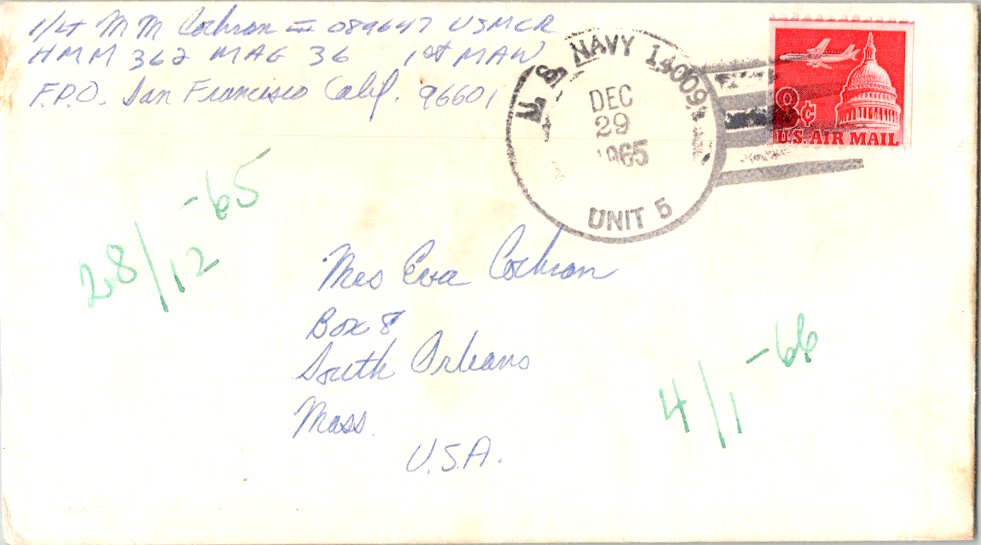 1/Lt M M Cochran III 089647 USMCR
HMM 362 MAG 36 1st MAW
F.P.O. San Francisco Calif. 96601
U. S. NAVY 14009
DEC
29
1965
UNIT 5
8¢
U.S. AIR MAIL
28/12-65
Mrs Eva Cochran
Box 8
South Orleans
Mass.
U.S.A.
4/1-66